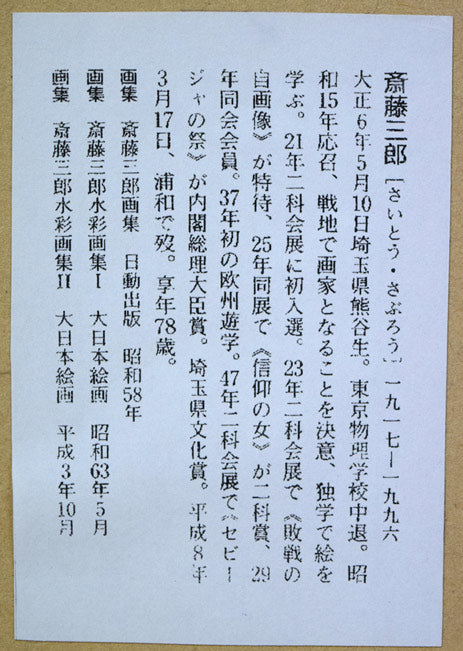 斎藤三郎〔さいとう・さぶろう〕一九一七―一九九六
大正6年5月10日埼玉県熊谷生。東京物理学校中退。昭
和15年応召、戦地で画家となることを決意、独学で絵を
学ぶ。21年二科会展に初入選。23年二科会展で《敗戦の
自画像》が特待、25年同展で《信仰の女》が二科賞、29
年同会会員。37年初の欧州遊学。47年二科会展で《セビー
ジャの祭》が内閣総理大臣賞。埼玉県文化賞。平成8年
3月17日、浦和で歿。享年78歳。
画集 斎藤三郎画集 日動出版 昭和58年
画集 斎藤三郎水彩画集I 大日本絵画 昭和63年5月
画集 斎藤三郎水彩画集II 大日本絵画 平成3年10月